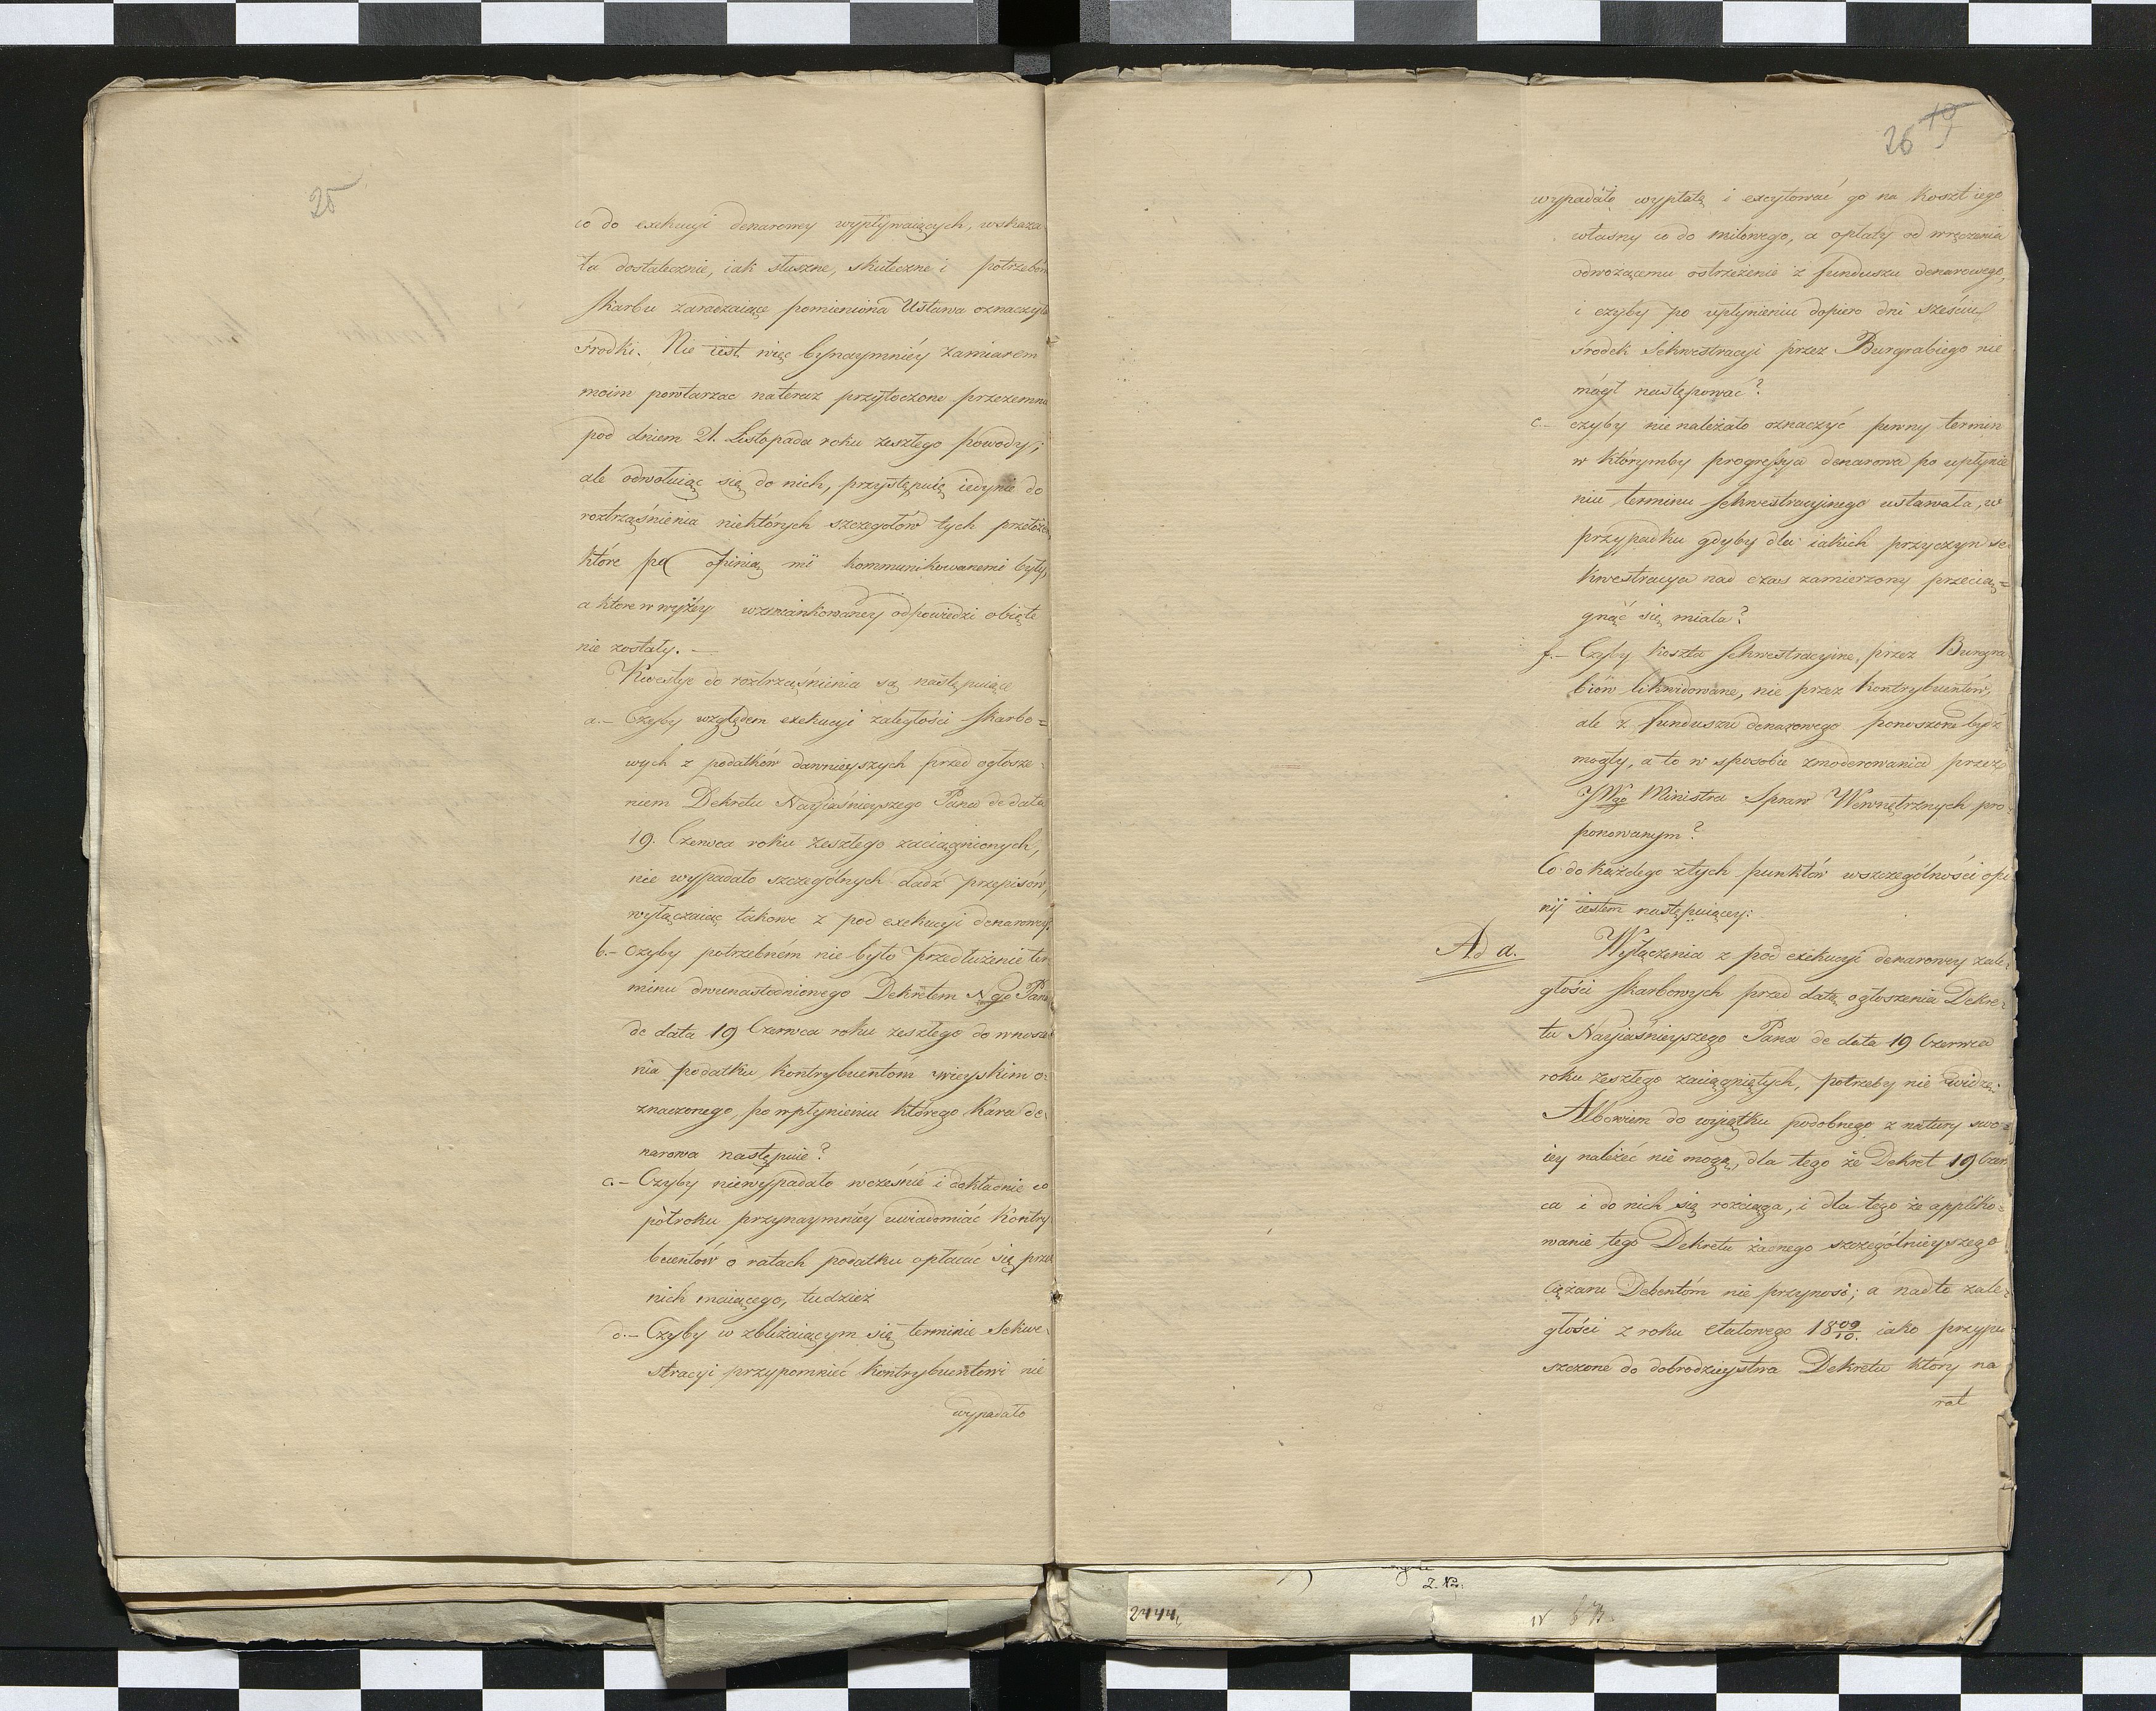 25
co do exekucyi denarowey wypływaiących, wskaza
ła dostatecznie, iak słuszne, skuteczne i potrzebom
skarbu zaradzaiące pomieniona Ustawa oznaczyła
środki. Nie iest więc bynaymniéy zamiarem
moim powtarzac nateraz przytoczone przezemnie
pod dniem 21. Listopada roku zeszłego powody;
ale odwołuiąc się do nich, przystępuię iedynie do
roztrząśnienia niektórych szczegołów tych przełożeń
które pod opinią mi kommunikowanemi były,
a ktore w wyżéy wzmiankowaney odpowiedzi obięte
nie zostały. —
Kwestye do roztrząśnienia są następuiące
a.- Czyby względem exekucyi zaległości skarbo=
wych z podatków dawnieyszych przed ogłosze-
niem Dekretu Nayiaśnieyszego Pana de data
19. Czerwca roku zeszłego zaciągnionych,
nie wypadało szczególnych dadź przepisów,
wyłączaiąc takowe z pod exekucyi denarowey?
b.- Czyby potrzebném nie było przedłużenie ter
minu dwunastodniowego Dekretem Ngo Pana
de data 19 Czerwca roku zeszłego do wnosze
nia podatku kontrybuentóm wieyskim o=
znaczonego, po wpłynieniu którego kara de=
narowa następuie?
c.- Czyby niewypadało wcześnie i dokładnie co
półroku przynaymniéy uwiadomiać kontry
buentów o ratach podatku opłacać się przez
nich maiącego, tudzież
d.- Czyby w zbliżaiącym się terminie sekwe-
stracyi przypomnieć kontrybuentowi nie
wypadało
26 19
wypadało wypłatę i excytować go na koszt iego
własny co do milowego, a opłaty od wręczenia
odwożącemu ostrzeżenie z funduszu denarowego,
i czyby po upłynieniu dopiero dni sześciu
środek sekwestracyi przez Burgrabiego nie
mógł następować?
e.- czyby nie należało oznaczyć pewny termin
w którymby progressya denarowa po upłynie
niu terminu sekwestracyjnego ustawała, w
przypadku gdyby dla iakich przyczyn se=
kwestracya nad czas zamierzony przecią=
gnąć się miała?
f.- Czyby koszta sekwestracyjne, przez Burgra
biów likwidowane, nie przez kontrybuentów,
ale z funduszu denarowego ponoszone bydź
mogły, a to w sposobie zmoderowania przez
JWgo Ministra Spraw Wewnętrznych pro=
ponowanym?
Co do każdego z tych punktów wszczególności opi
nij iestem następuiącey:
Ad a.
Wyłączenia z pod exekucyi denarowey zale=
głości skarbowych przed datą ogłoszenia Dekre=
tu Nayiaśnieyszego Pana de data 19 Czerwca
roku zeszłego zaciągniętych, potrzeby nie widzę.
Albowiem do wyiątku podobnego z natury swo=
iey należeć nie mogą, dla tego że Dekret 19 Czerw
ca i do nich się rozciąga, i dla tego że appliko=
wanie tego Dekretu żadnego szczególnieyszego
Ciężaru Debentóm nie przynosi; a nadto zale=
głości z roku etatowego 18 09/10. iako przypu
szczone do dobrodzieystwa Dekretu który na
rat
2444
Z. No: